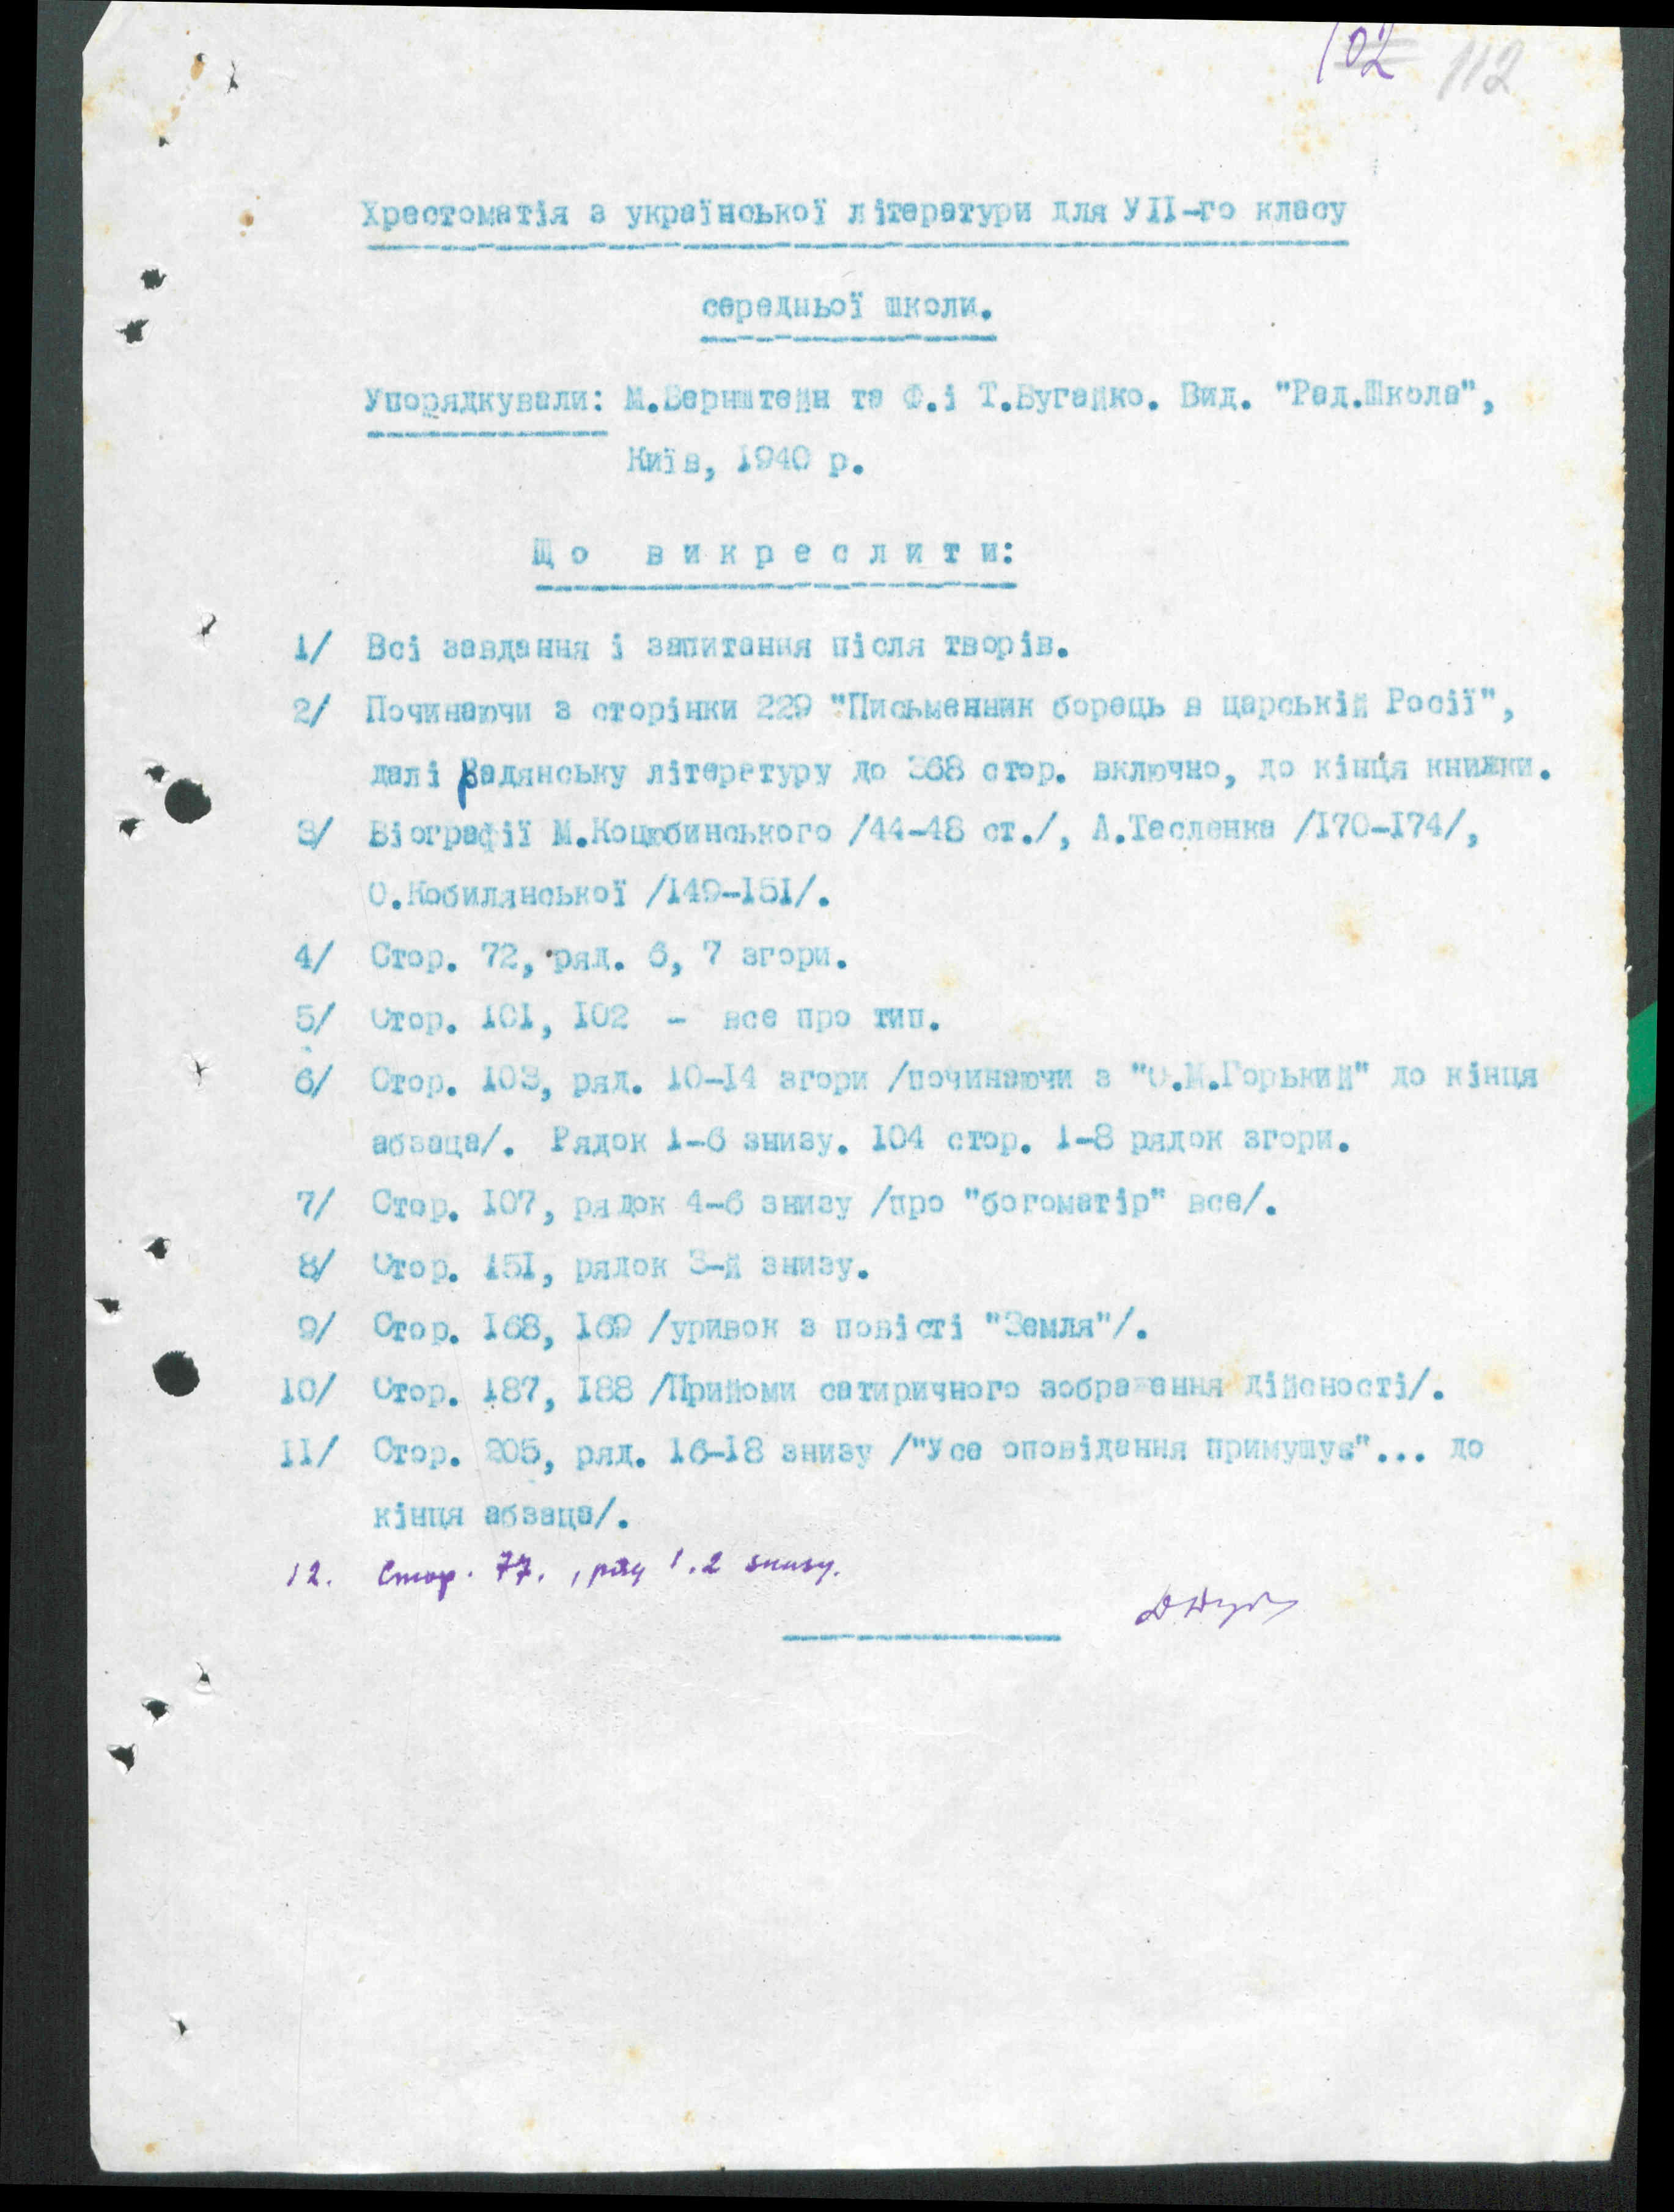 102 112
Хрестоматія з української літератури для УІІ-го класу
середньої школи.
Упорядкували: М.Бернштейн та Ф.і Т.Бугайко. Вид. "Рад.Школа",
Київ, 1940 р.
Що викреслити:
1/ Всі завдання і запитання після творів.
2/ Починаючи з сторінки 229 "Письменник борець в царській Росії",
далі радянську літературу до 368 стор. включно, до кінця книжки.
3/ Біографії М.Коцюбинського /44-48 ст./, А.Тесленка /170-174/,
О.Кобилянської /149-151/.
4/ Стор. 72, ряд. 6, 7 згори.
5/ Стор. 101, 102 - все про тип.
6/ Стор. 103, ряд. 10-14 згори /починаючи з "О.М.Горький" до кінця
абзаца/. Рядок 1-6 знизу. 104 стор. 1-8 рядок згори.
7/ Стор. 107, рядок 4-6 знизу /про "богоматір" все/.
8/ Стор. 151, рядок 3-й знизу.
9/ Стор. 168, 169 /уривок з повісті "Земля"/.
10/ Стор. 187, 188 /Прийоми сатиричного зображення дійсності/.
11/ Стор. 205, ряд. 16-18 знизу /"Усе оповідання примушує"... до
кінця абзаца/.
12. Стор. 77., ряд 1.2 знизу.